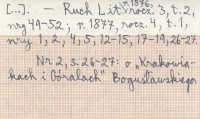 [..]. — Ruch Lit. r. 1876, rocz. 3, t. 2,
nry 49-52; r. 1877, rocz. 4, t. 1,
nry 1, 2, 4, 5, 12-15, 17-19, 26-27.
Nr 2, s. 26-27: o „Krakowia-
kach i Góralach" Bogusławskiego